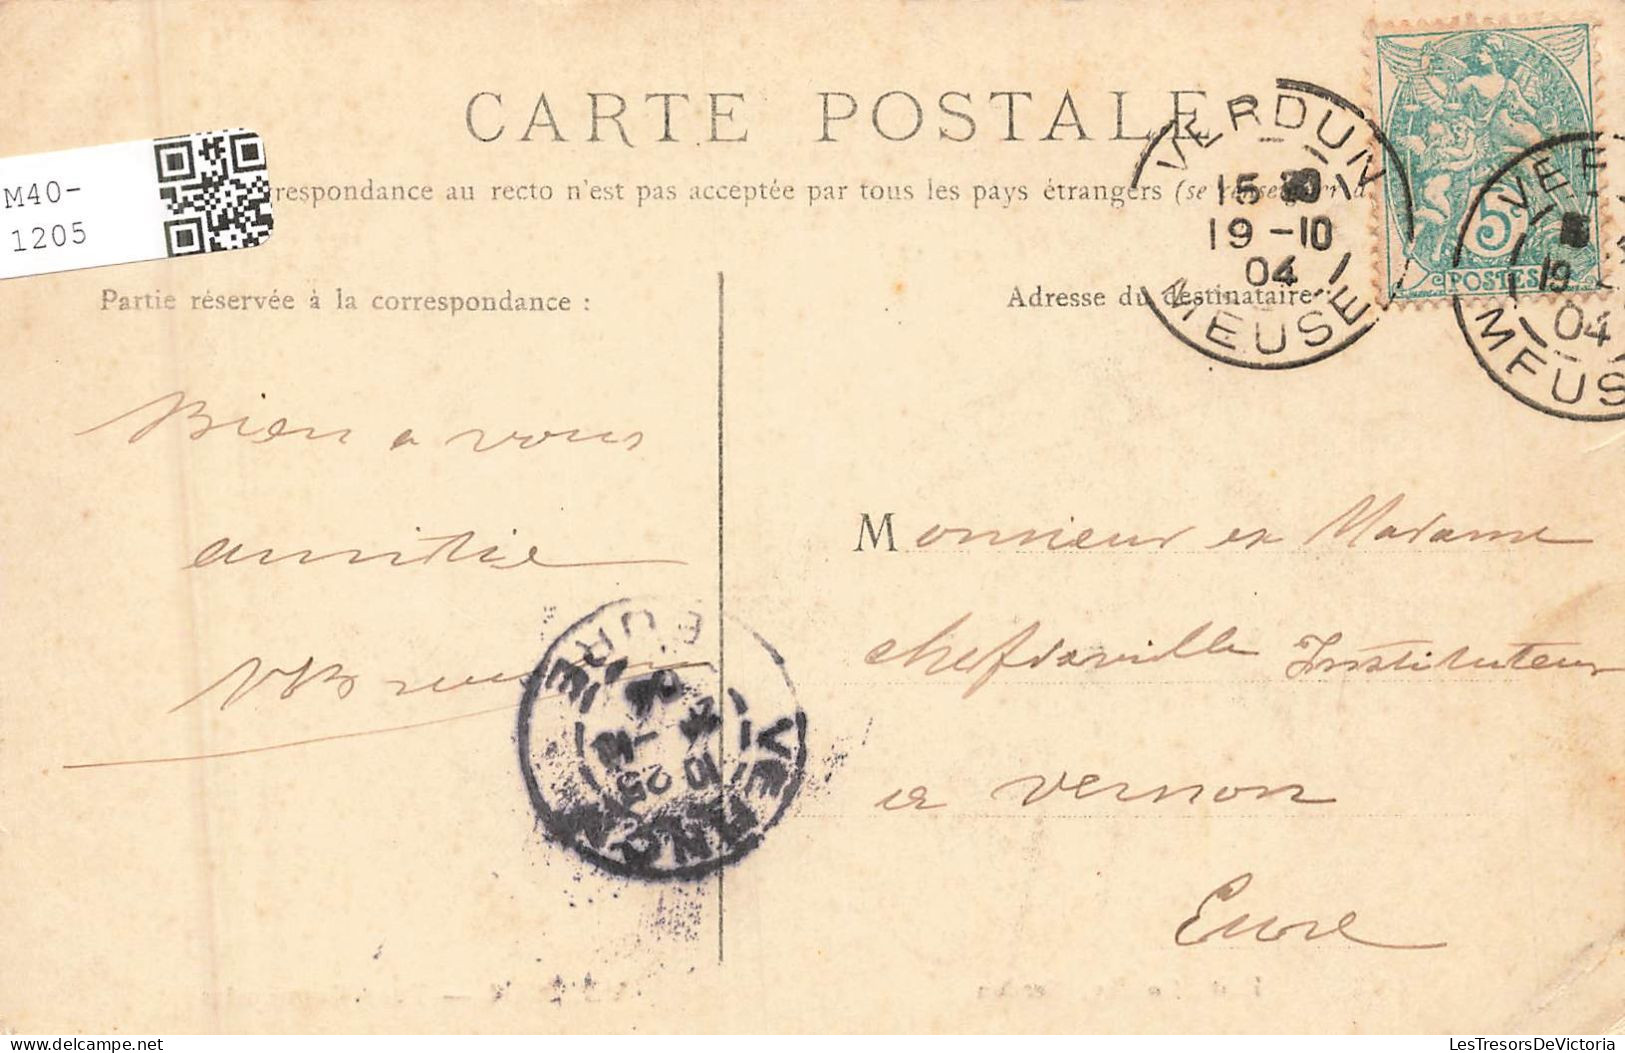 CARTE POSTALE
respondance au recto n'est pas acceptée par tous les pays étrangers (se renseigner à
M40-
1205
Partie réservée à la correspondance :
Adresse du destinataire
VERDUN
15
19-10
04
MEUSE
5c
POSTES
VE
19
04
MEUS
Bien a vous
amitié
Monsieur et Madame
Instituteur
a Vernon
Eure
VERNON
10 25
EURE
delcampe.net
LesTresorsDeVictoria